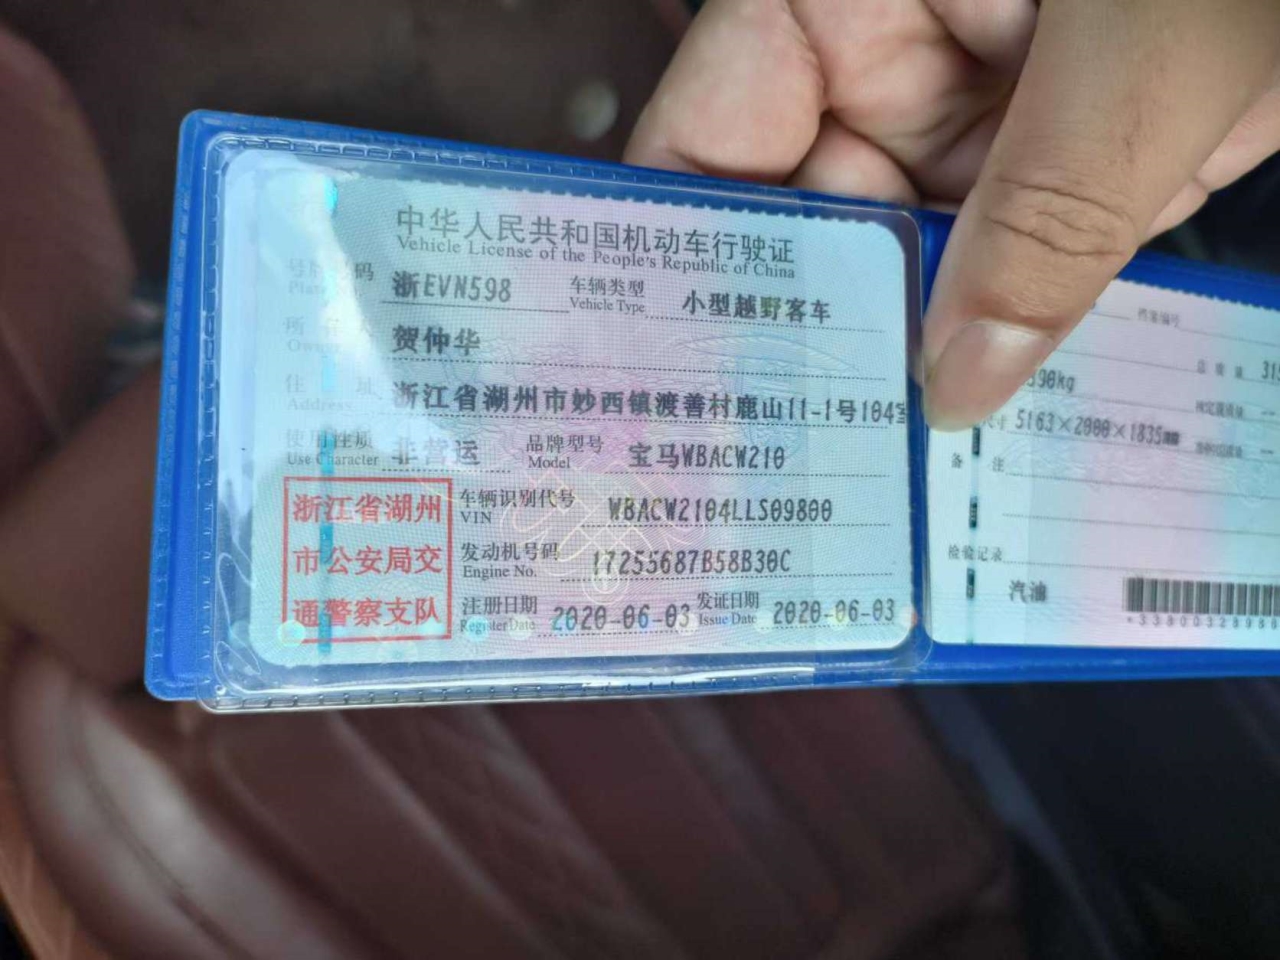 中华人民共和国机动车行驶证
Vehicle License of the People's Republic of China
号牌号码 浙EVN598 车辆类型 小型越野客车
Plate Vehicle Type
所 贺仲华
Owner
住 址 浙江省湖州市妙西镇渡善村鹿山11-1号104室
Address
使用性质 非营运 品牌型号 宝马WBACW210
Use Character Model
浙江省湖州
市公安局交
通警察支队
车辆识别代号 WBACW2104LLS09800
VIN
发动机号码 17255687B58B30C
Engine No.
注册日期 2020-06-03 发证日期 2020-06-03
Register Date Issue Date
档案编号
总质量 315
390kg 核定载质量 --
尺寸 5163×2000×1835mm --
备 注
检验记录
汽油